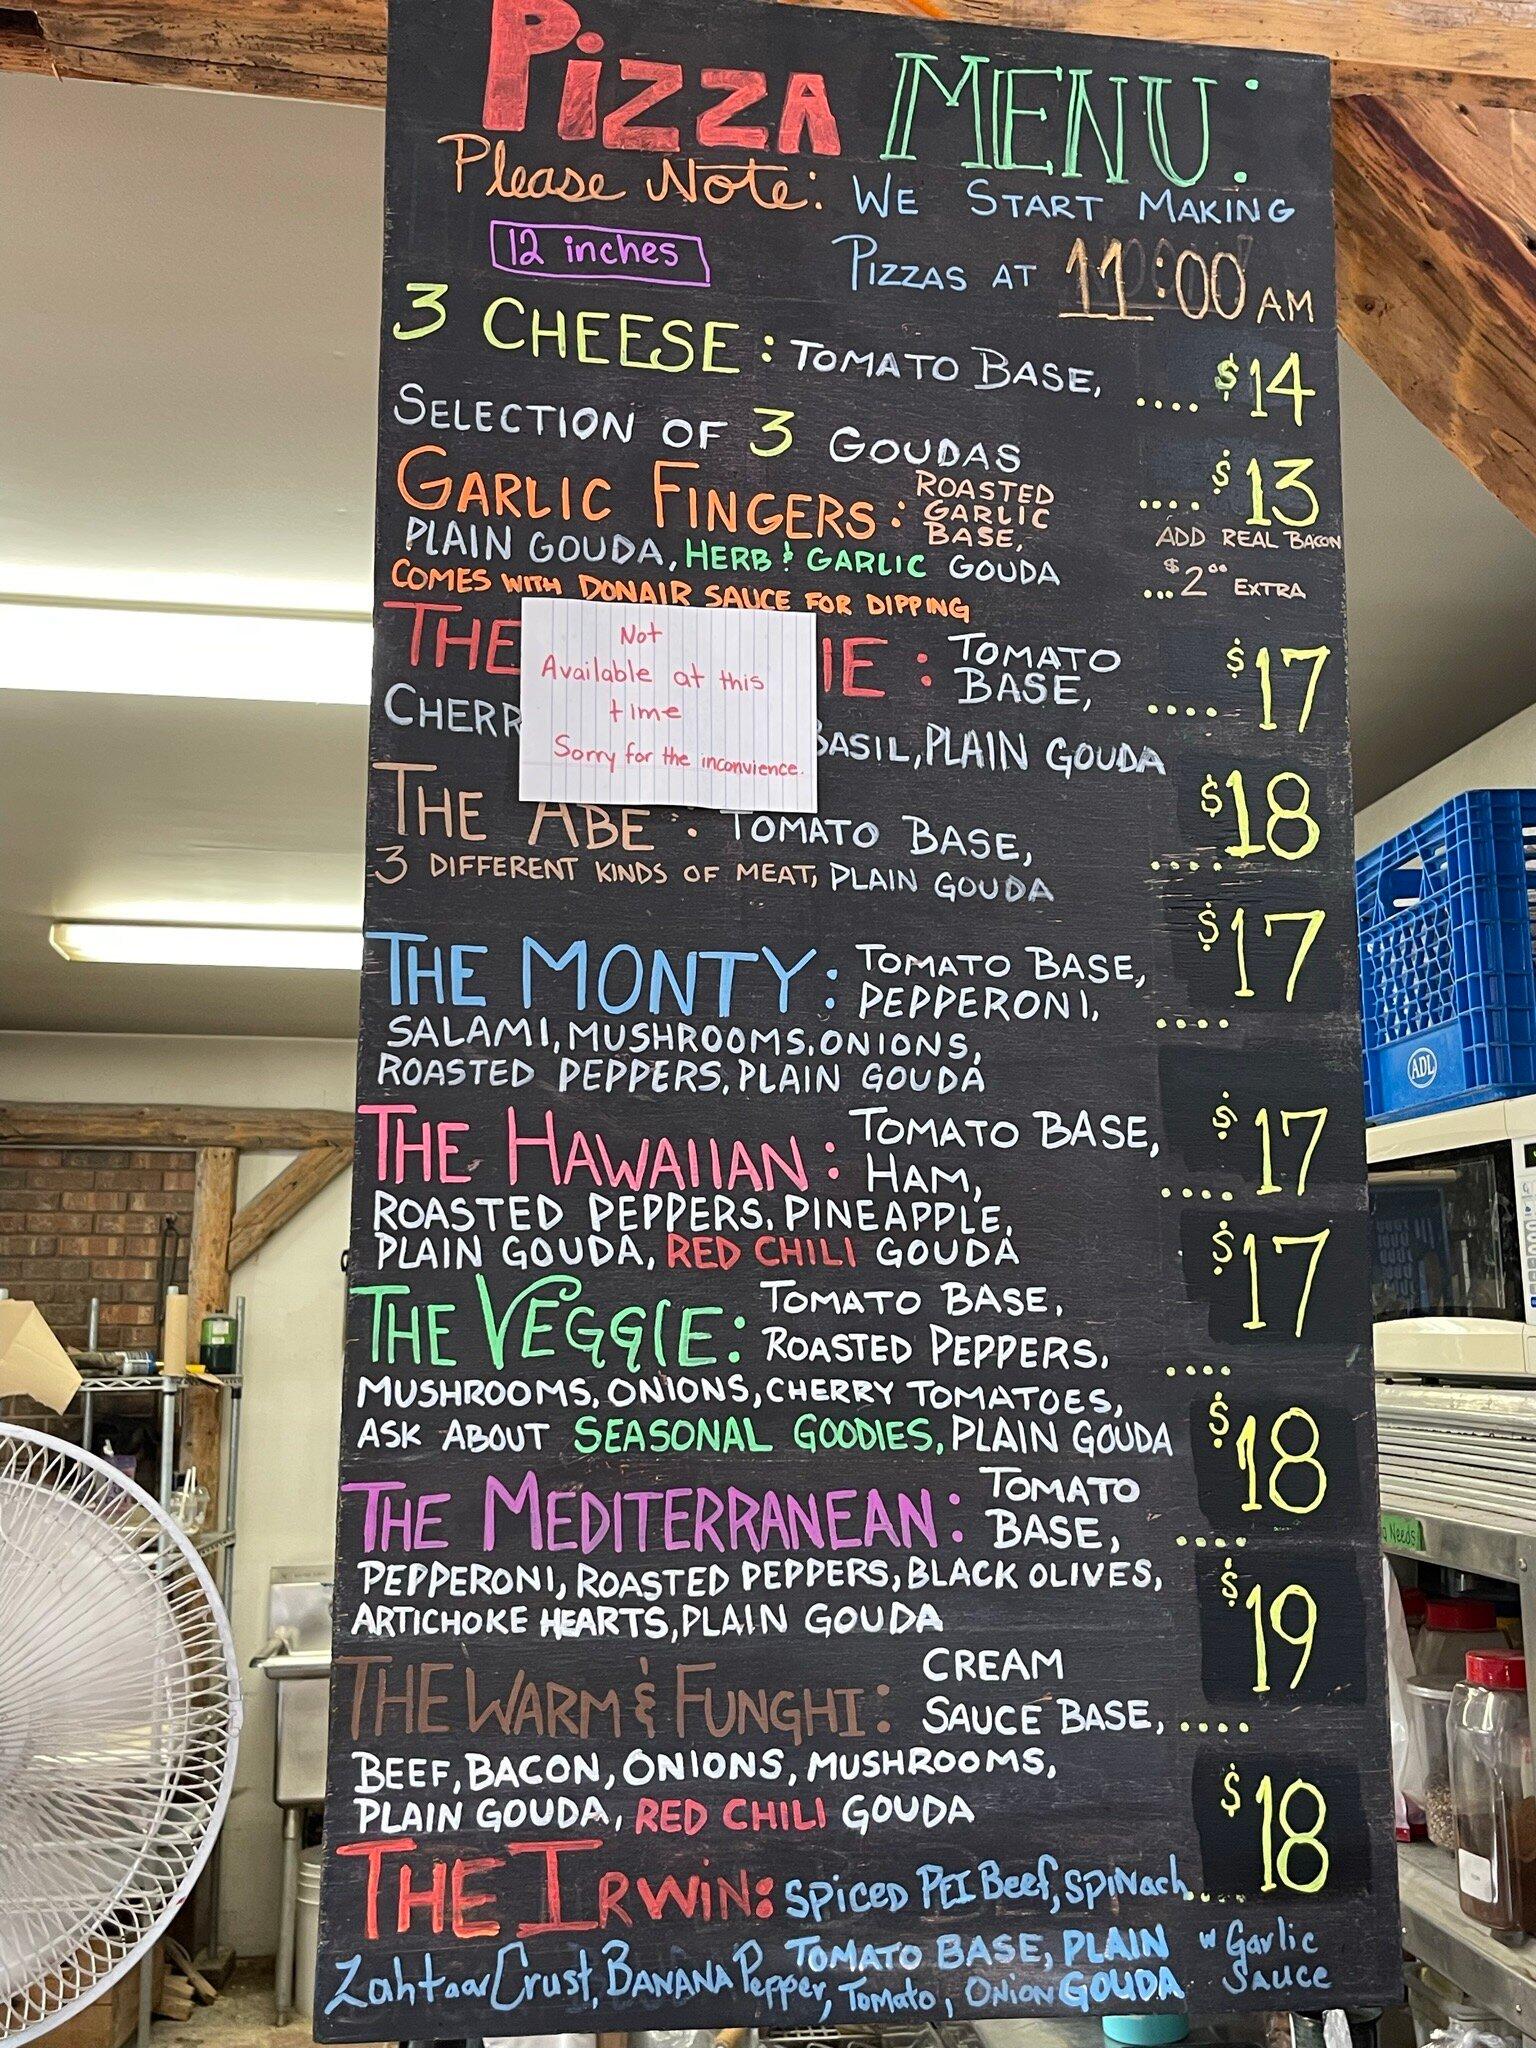 PIZZA MENU:
Please Note: WE START MAKING
12 inches PIZZAS AT 11:00 AM
3 CHEESE: TOMATO BASE, .... $14
SELECTION OF 3 GOUDAS
GARLIC FINGERS: ROASTED GARLIC BASE, .... $13
PLAIN GOUDA, HERB & GARLIC GOUDA
ADD REAL BACON
...$2.00 EXTRA
COMES WITH DONAIR SAUCE FOR DIPPING
THE IE: TOMATO BASE, .... $17
BASIL, PLAIN GOUDA
Not
Available at this
time
Sorry for the inconvience.
THE ABE: TOMATO BASE, .... $18
3 DIFFERENT KINDS OF MEAT, PLAIN GOUDA
THE MONTY: TOMATO BASE, .... $17
PEPPERONI,
SALAMI, MUSHROOMS, ONIONS,
ROASTED PEPPERS, PLAIN GOUDA
THE HAWAIIAN: TOMATO BASE, .... $17
HAM,
ROASTED PEPPERS, PINEAPPLE,
PLAIN GOUDA, RED CHILI GOUDA
THE VEGGIE: TOMATO BASE, .... $17
ROASTED PEPPERS,
MUSHROOMS, ONIONS, CHERRY TOMATOES,
ASK ABOUT SEASONAL GOODIES, PLAIN GOUDA
THE MEDITERRANEAN: TOMATO BASE, .... $18
PEPPERONI, ROASTED PEPPERS, BLACK OLIVES,
ARTICHOKE HEARTS, PLAIN GOUDA
THE WARM & FUNGHI: CREAM SAUCE BASE, .... $19
BEEF, BACON, ONIONS, MUSHROOMS,
PLAIN GOUDA, RED CHILI GOUDA
THE IRWIN: SPICED PEI Beef, SPINach ... $18
TOMATO BASE, PLAIN GOUDA w Garlic Sauce
Zahtaar Crust, BANANA Pepper, Tomato, ONION
ADL
Needs